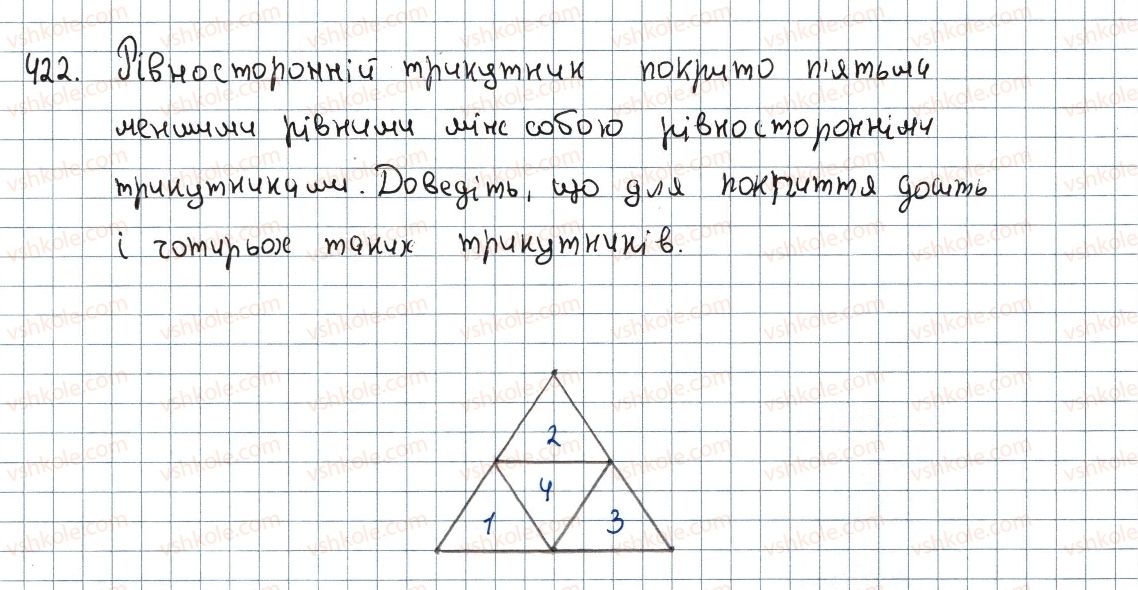 422. Рівносторонній трикутник покрито п'ятьма
меншими рівними між собою рівносторонніми
трикутниками. Доведіть, що для покриття досить
і чотирьох таких трикутників.
2
4
1 3
vshkole.com